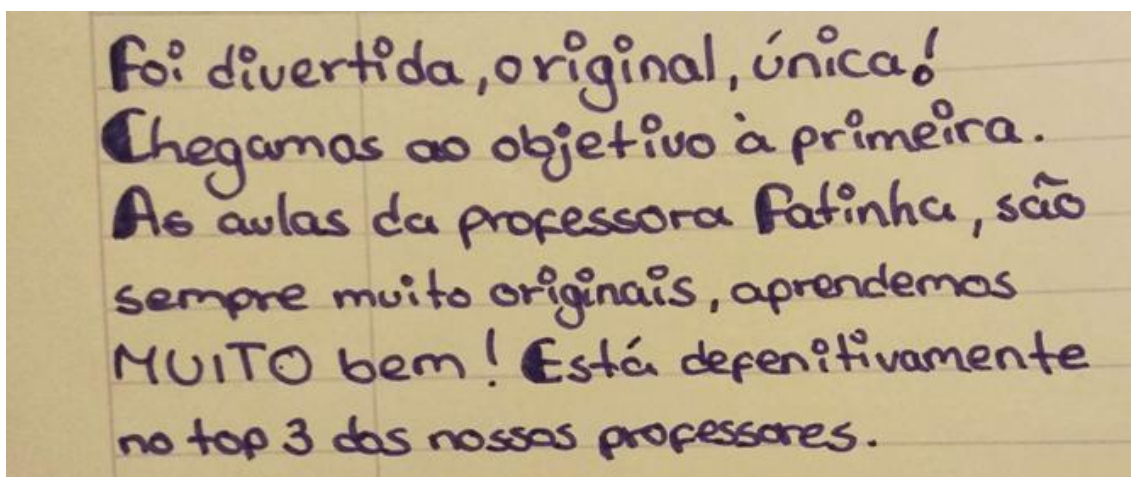 Foi divertida, original, única!
Chegamos ao objetivo à primeira.
As aulas da professora Fatinha, são
sempre muito originais, aprendemos
MUITO bem! Está defenitivamente
no top 3 dos nossos professores.